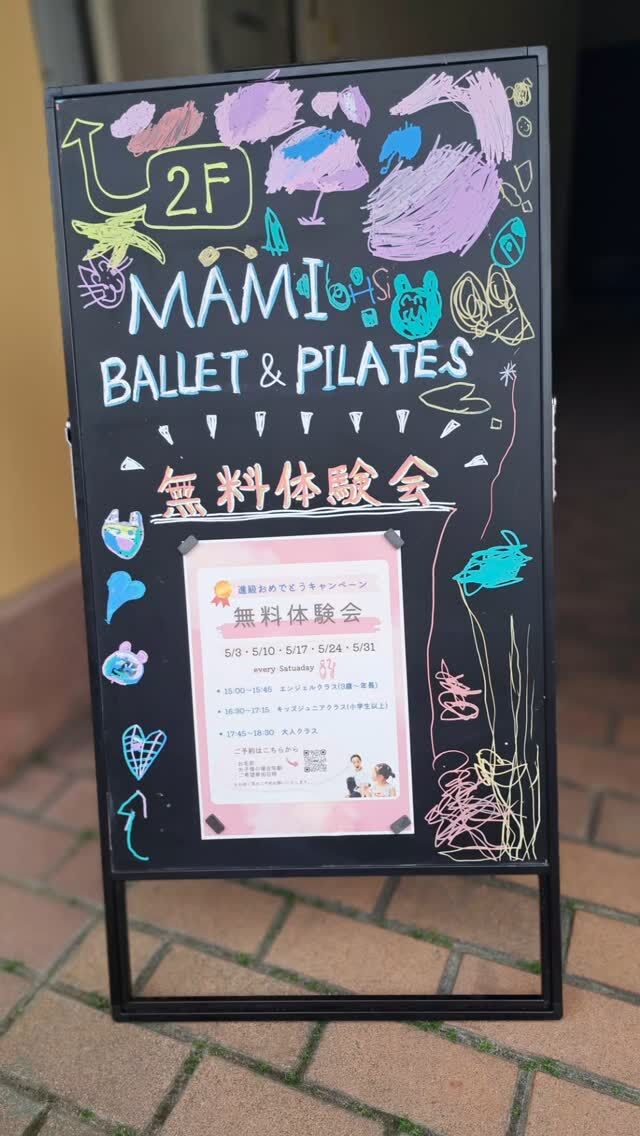 2F
MAMI
BALLET & PILATES
無料体験会
進級おめでとうキャンペーン
無料体験会
5/3・5/10・5/17・5/24・5/31
every Satuaday
15:00~15:45 エンジェルクラス(3歳~年長)
16:30~17:15 キッズジュニアクラス(小学生以上)
17:45~18:30 大人クラス
ご予約はこちらから
お名前
お子様の場合年齢
ご希望参加日時